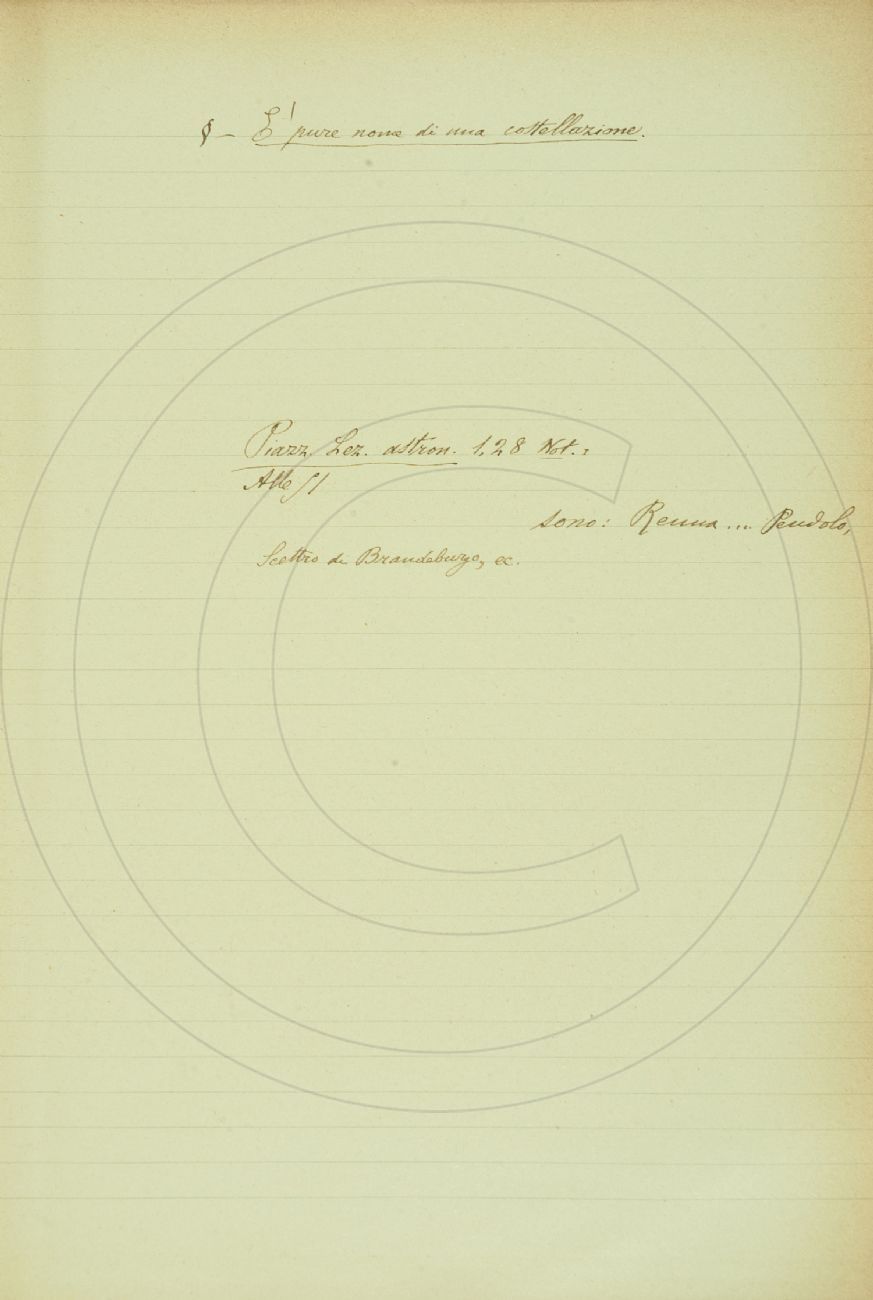 § - E' pure nome di una costellazione.
Piazz. Lez. astron. 1, 28 Not.:
Alle
sono: Renna ... Pendolo,
Scettro di Brandeburgo, ec.